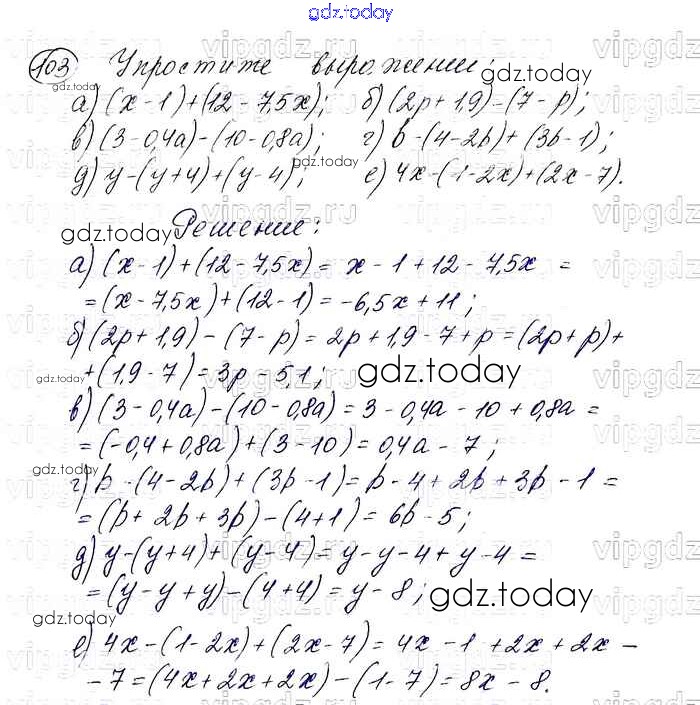 gdz.today
103 Упростите выражение:
а) (x - 1) + (12 - 7,5x); б) (2p + 1,9) - (7 - p);
в) (3 - 0,4a) - (10 - 0,8a); г) b - (4 - 2b) + (3b - 1);
д) y - (y + 4) + (y - 4); е) 4x - (1 - 2x) + (2x - 7).
Решение:
а) (x - 1) + (12 - 7,5x) = x - 1 + 12 - 7,5x =
= (x - 7,5x) + (12 - 1) = -6,5x + 11;
б) (2p + 1,9) - (7 - p) = 2p + 1,9 - 7 + p = (2p + p) +
+ (1,9 - 7) = 3p - 5,1;
в) (3 - 0,4a) - (10 - 0,8a) = 3 - 0,4a - 10 + 0,8a =
= (-0,4 + 0,8a) + (3 - 10) = 0,4a - 7;
г) b - (4 - 2b) + (3b - 1) = b - 4 + 2b + 3b - 1 =
= (b + 2b + 3b) - (4 + 1) = 6b - 5;
д) y - (y + 4) + (y - 4) = y - y - 4 + y - 4 =
= (y - y + y) - (4 + 4) = y - 8;
е) 4x - (1 - 2x) + (2x - 7) = 4x - 1 + 2x + 2x -
- 7 = (4x + 2x + 2x) - (1 - 7) = 8x - 8.